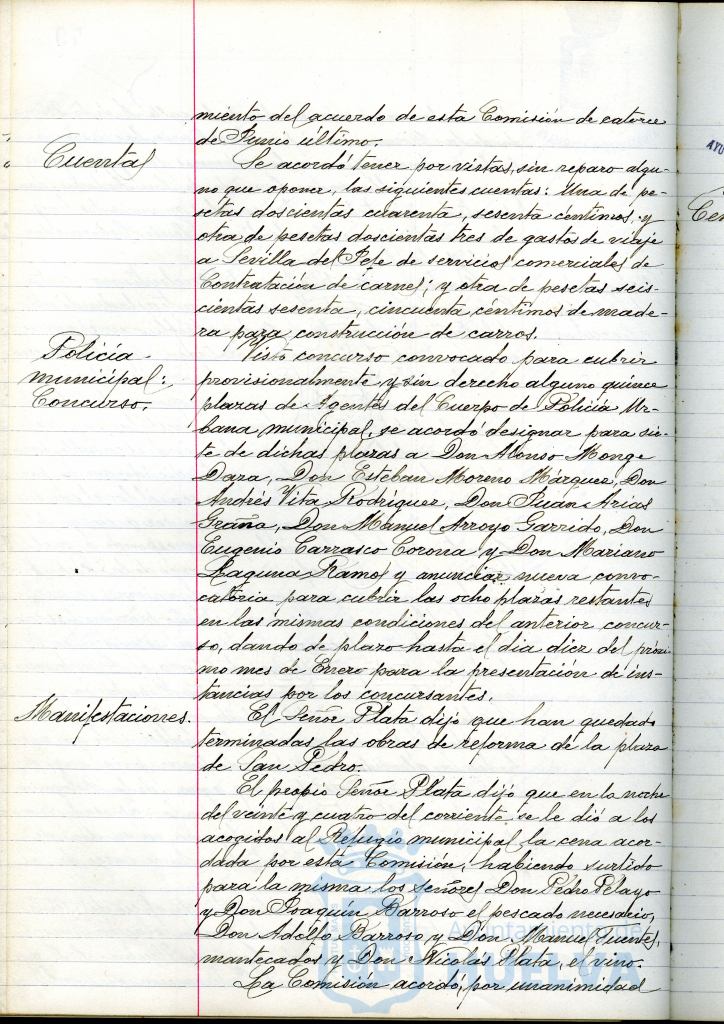 miento del acuerdo de esta Comisión de catorce
de Junio último.
Cuentas
Se acordó tener por vistas, sin reparo algu-
no que oponer, las siguientes cuentas: Una de pe-
setas doscientas cuarenta, sesenta céntimos, y
otra de pesetas doscientas tres de gastos de viaje
a Sevilla del Jefe de servicios comerciales de
Contratación de carnes; y otra de pesetas seis-
cientas sesenta, cincuenta céntimos de made-
ra para construcción de carros.
Policía
municipal:
Concurso.
Visto concurso convocado para cubrir
provisionalmente y sin derecho alguno quince
plazas de Agentes del Cuerpo de Policía Ur-
bana municipal, se acordó designar para sie-
te de dichas plazas a Don Alonso Monge
Daza, Don Esteban Moreno Márquez, Don
Andrés Vita Rodríguez, Don Juan Arias
Graña, Don Manuel Arroyo Garrido, Don
Eugenio Carrasco Corona y Don Mariano
Laguna Ramos y anunciar nueva convo-
catoria para cubrir las ocho plazas restantes
en las mismas condiciones del anterior concur-
so, dando de plazo hasta el dia diez del próxi-
mo mes de Enero para la presentación de ins-
tancias por los concursantes.
Manifestaciones.
El Señor Plata dijo que han quedado
terminadas las obras de reforma de la plaza
de San Pedro.
El propio Señor Plata dijo que en la noche
del veinte y cuatro del corriente se le dió a los
acogidos al Refugio municipal la cena acor-
dada por esta Comisión, habiendo surtido
para la misma los señores Don Pedro Pelayo
y Don Joaquín Barroso el pescado necesario,
Don Adolfo Barroso y Don Manuel Fuentes,
mantecados y Don Nicolas Plata, el vino.
La Comisión acordó, por unanimidad
Ayuntamiento de
HUELVA